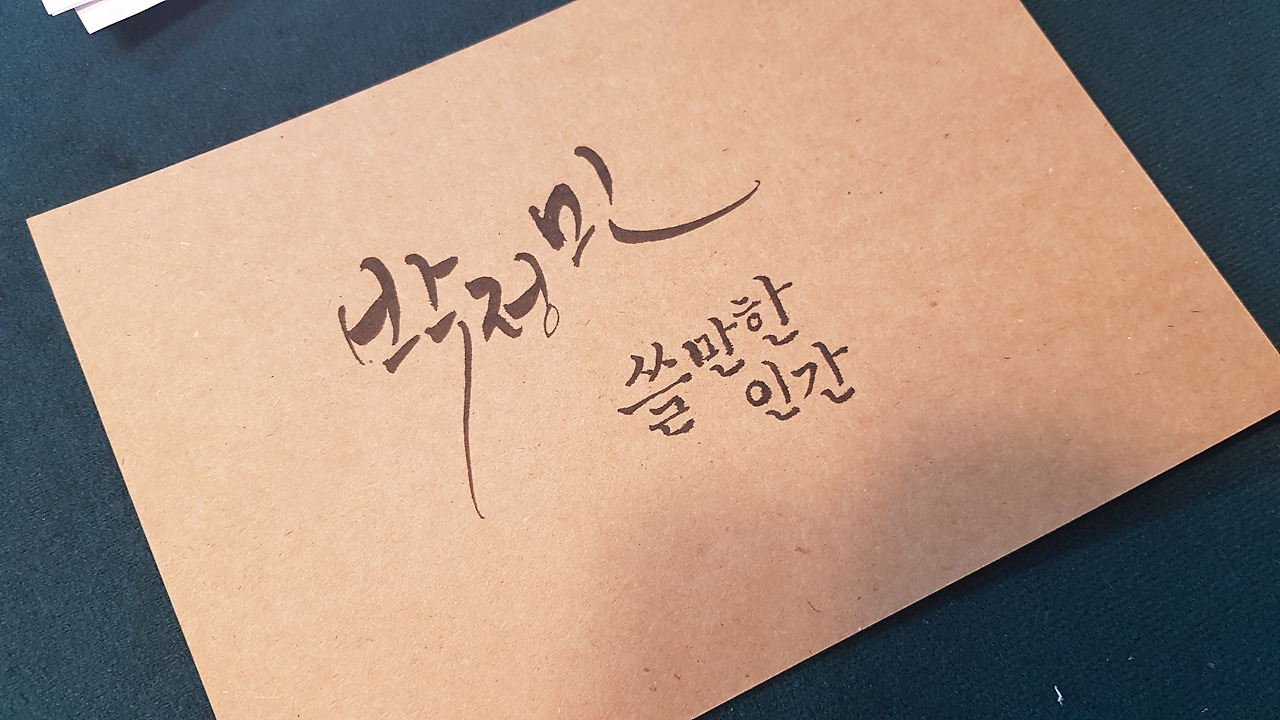 박정민
쓸만한
인간